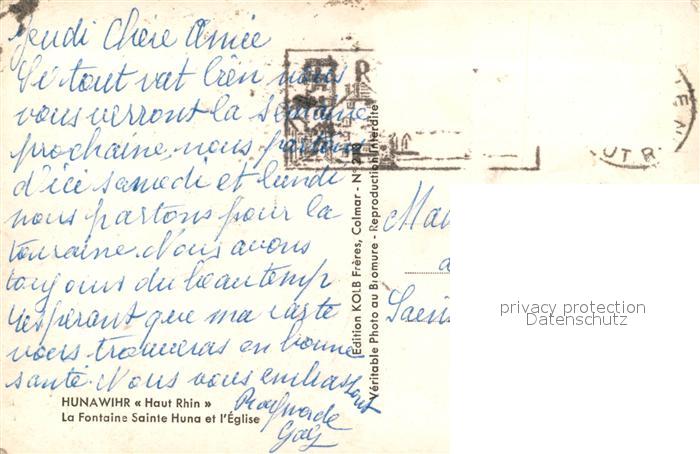 Jeudi Chère Amie
Si tout vat bien nous
vous verront la semaine
prochaine, nous partons
d'ici samedi et lundi
nous partons pour la
touraine. Nous avons
toujours du beau temp
j'espérant que ma carte
vous trouveras en bonne
santé. Nous vous embrassont
HUNAWIHR « Haut Rhin »
La Fontaine Sainte Huna et l'Église
Edition KOLB Frères, Colmar - N°
Véritable Photo au Bromure - Reproduction interdite
R
UT R
Mau
a
privacy protection
Datenschutz